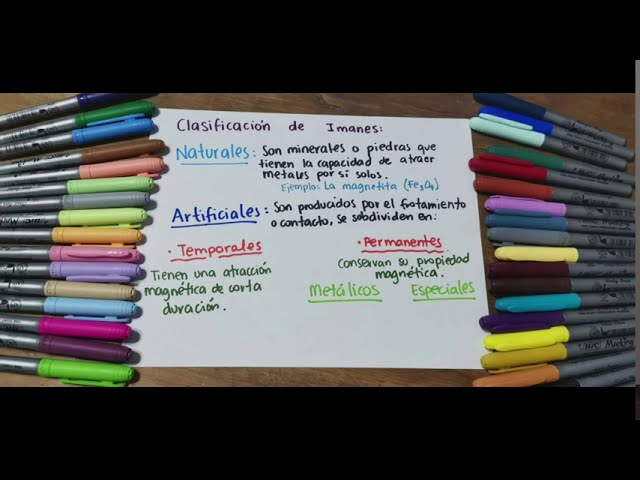 Clasificación de Imanes:
Naturales: Son minerales o piedras que
tienen la capacidad de atraer
metales por sí solos.
Ejemplo: La magnetita (Fe3O4)
Artificiales: Son producidos por el frotamiento
o contacto, se subdividen en:
• Temporales
Tienen una atracción
magnética de corta
duración.
• Permanentes
conservan su propiedad
magnética.
Metálicos Especiales